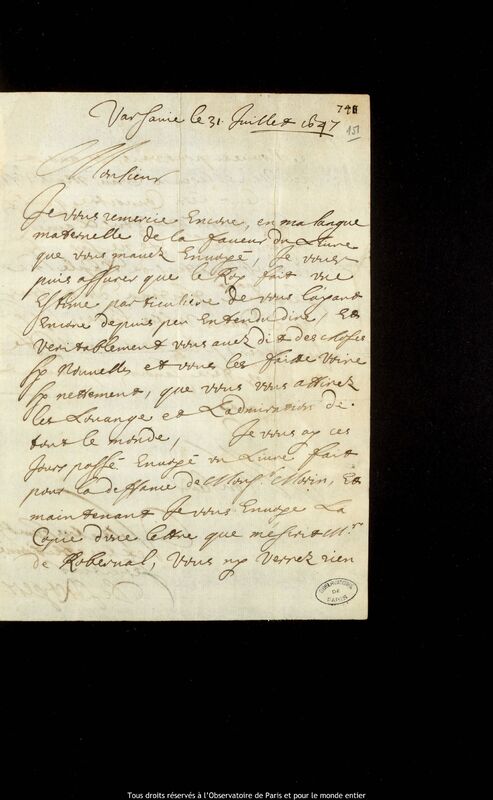 746
151
Varsavie le 31 Juillet 1647
Monsieur
Je vous remercie Encore, en ma langue
maternelle de la faveur du Livre
que vous mavez Envoyé, Je vous
puis assurer que le Roy fait une
Estime particuliere de vous l'ayant
Encore depuis peu Entendu dire, Et
veritablement vous avez dit des choses
sy Nouvelles et vous les faitte voire
sy nettement, que vous vous attirez
les Louange et Ladmiration de
tout le monde, Je vous ay ces
Jours passé Envoyé un Livre fait
pour la deffance de Monsr Morin, Et
maintenant Je vous Envoye La
Copie dune lettre que mescrit Mr
de Roberval, Vous ny verrez rien
OBSERVATOIRE
DE
PARIS
Tous droits réservés à l'Observatoire de Paris et pour le monde entier